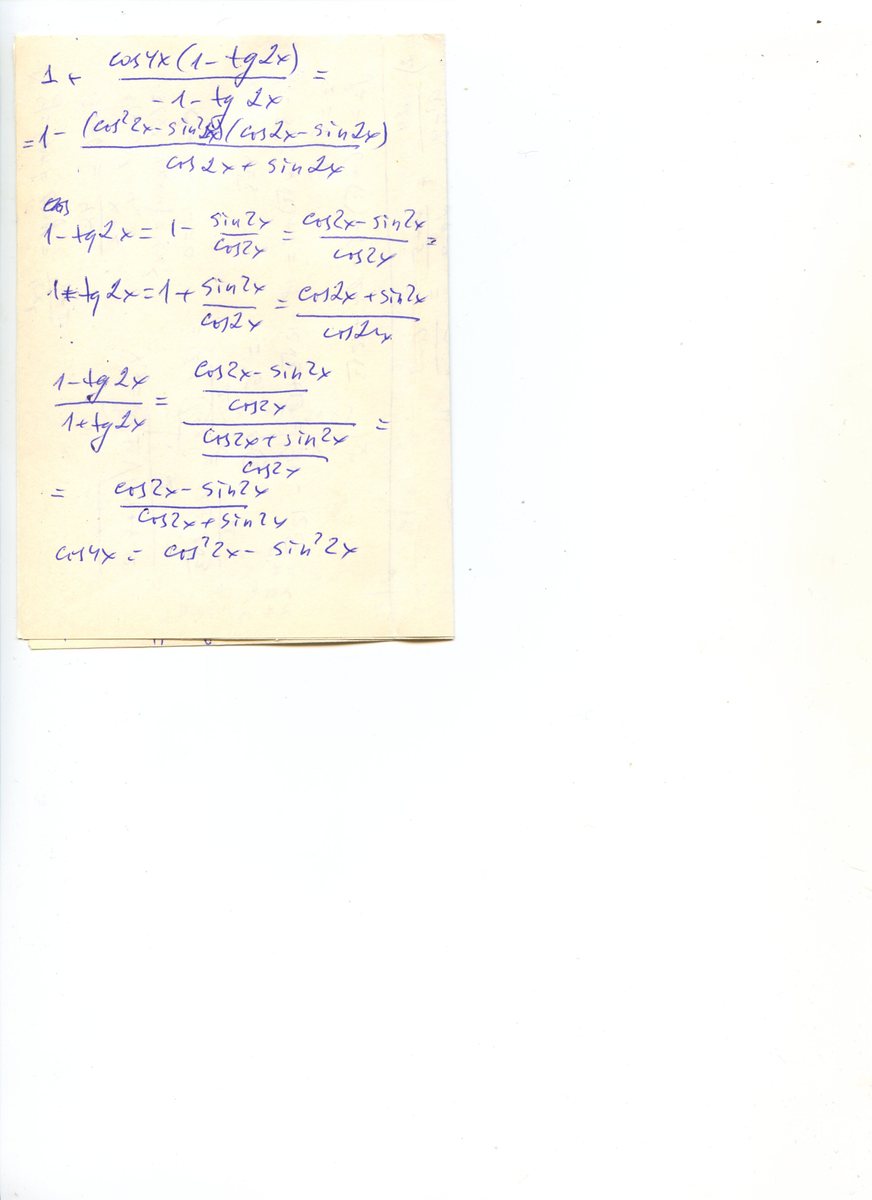 1 + cos4x(1 - tg2x) / -1 - tg 2x =
= 1 - (cos²2x - sin²2x)(cos2x - sin2x) / cos2x + sin2x
cos
1 - tg2x = 1 - sin2x / cos2x = cos2x - sin2x / cos2x =
1 + tg2x = 1 + sin2x / cos2x = cos2x + sin2x / cos2x
1 - tg2x / 1 + tg2x = cos2x - sin2x / cos2x / cos2x + sin2x / cos2x =
= cos2x - sin2x / cos2x + sin2x
cos4x = cos²2x - sin²2x